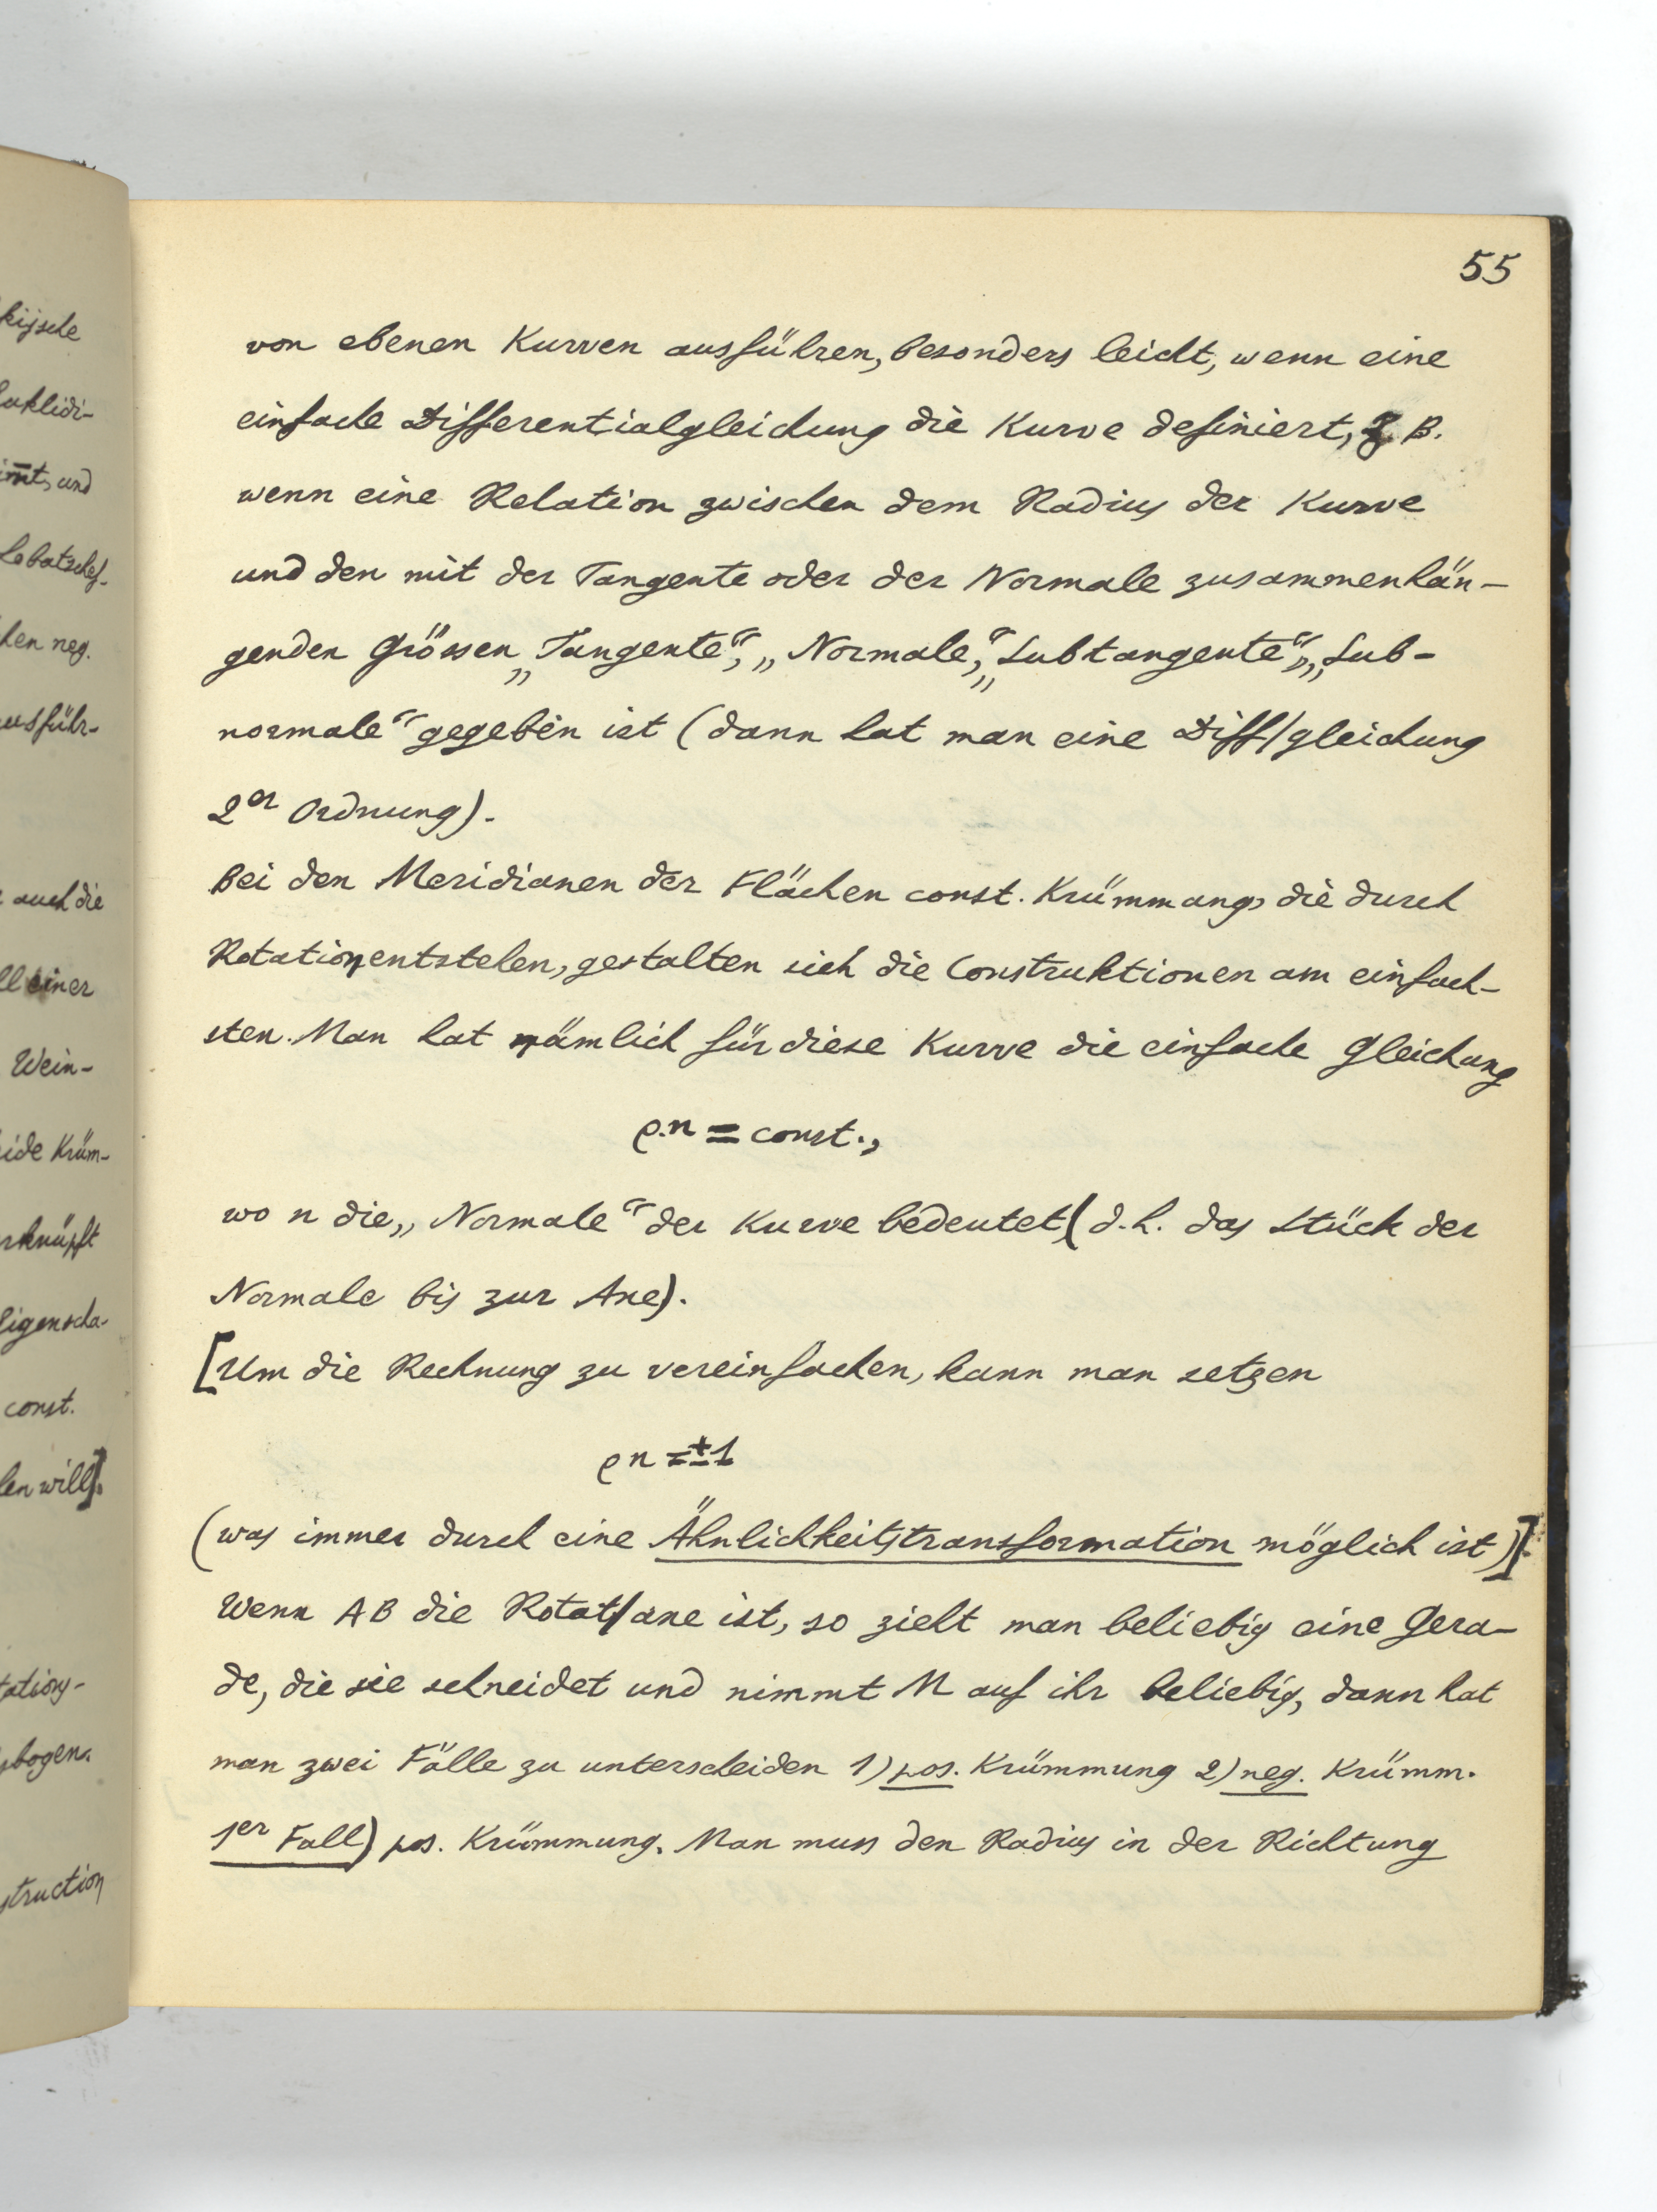 55
von ebenen Kurven ausführen, besonders leicht, wenn eine
einfache Differentialgleichung die Kurve definiert, z B.
wenn eine Relation zwischen dem Radius der Kurve
und den mit der Tangente oder der Normale zusammenhän-
genden Grössen „Tangente“, „Normale“, „Subtangente“, „Sub-
normale“ gegeben ist (dann hat man eine Diff/gleichung
2er Ordnung).
Bei den Meridianen der Flächen const. Krümmung, die durch
Rotation entstehen, gestalten sich die Construktionen am einfach-
sten. Man hat nämlich für diese Kurve die einfache Gleichung
ρ.n = const.,
wo n die „Normale“ der Kurve bedeutet (d.h. das Stück der
Normale bis zur Axe).
[Um die Rechnung zu vereinfachen, kann man setzen
ρ n = ± 1
(was immer durch eine Ähnlichkeitstransformation möglich ist)].
Wenn AB die Rotat/axe ist, so zieht man beliebig eine Gera-
de, die sie schneidet und nimmt M auf ihr beliebig, dann hat
man zwei Fälle zu unterscheiden 1) pos. Krümmung 2) neg. Krümm.
1er Fall) pos. Krümmung. Man muss den Radius in der Richtung
kijsche
uklidi-
und
Lobatschef-
hen neg.
ausführ-
auch die
ll einer
Wein-
ide Krüm-
rknüpft
Eigenscha-
const.
len will].
tations-
sbogen.
struction